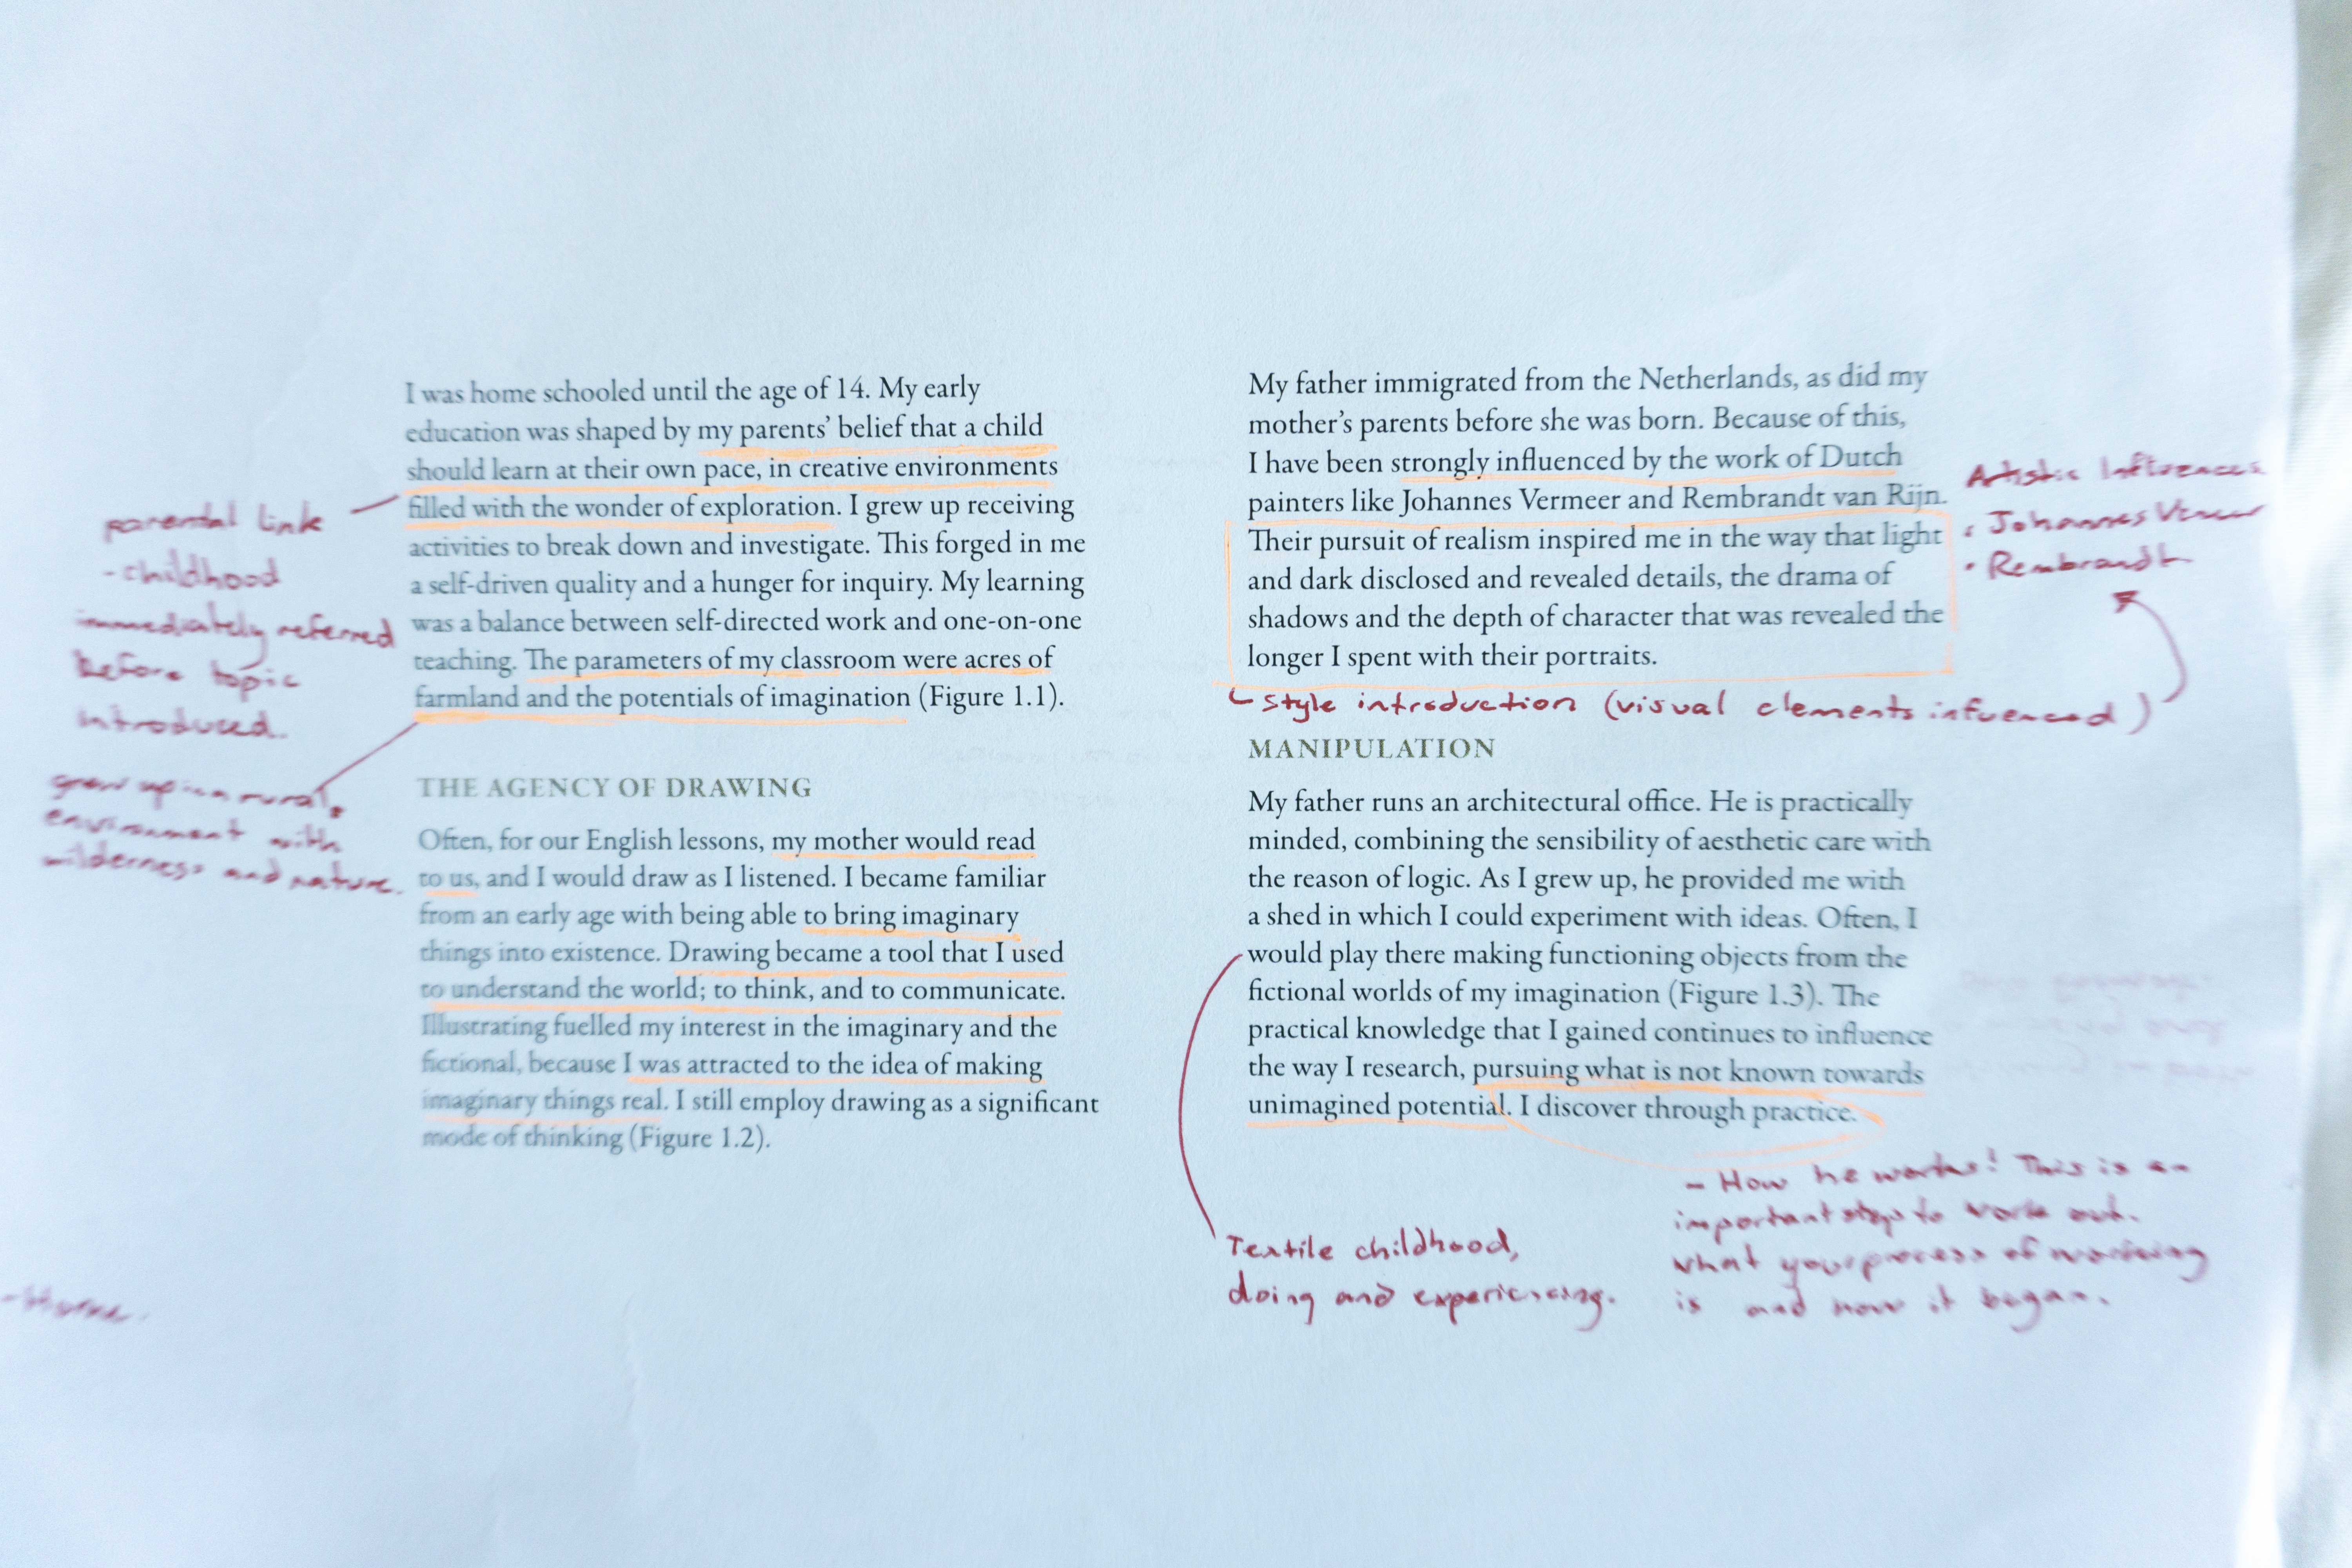 I was home schooled until the age of 14. My early
education was shaped by my parents' belief that a child
should learn at their own pace, in creative environments
filled with the wonder of exploration. I grew up receiving
activities to break down and investigate. This forged in me
a self-driven quality and a hunger for inquiry. My learning
was a balance between self-directed work and one-on-one
teaching. The parameters of my classroom were acres of
farmland and the potentials of imagination (Figure 1.1).
parental link
- childhood
immediately referred
before topic
introduced.
grew up in a rural
environment with
wilderness and nature.
THE AGENCY OF DRAWING
Often, for our English lessons, my mother would read
to us, and I would draw as I listened. I became familiar
from an early age with being able to bring imaginary
things into existence. Drawing became a tool that I used
to understand the world; to think, and to communicate.
Illustrating fuelled my interest in the imaginary and the
fictional, because I was attracted to the idea of making
imaginary things real. I still employ drawing as a significant
mode of thinking (Figure 1.2).
My father immigrated from the Netherlands, as did my
mother's parents before she was born. Because of this,
I have been strongly influenced by the work of Dutch
painters like Johannes Vermeer and Rembrandt van Rijn.
Their pursuit of realism inspired me in the way that light
and dark disclosed and revealed details, the drama of
shadows and the depth of character that was revealed the
longer I spent with their portraits.
Artistic Influences
• Johannes
• Rembrandt
Style introduction (visual elements infuenced)
MANIPULATION
My father runs an architectural office. He is practically
minded, combining the sensibility of aesthetic care with
the reason of logic. As I grew up, he provided me with
a shed in which I could experiment with ideas. Often, I
would play there making functioning objects from the
fictional worlds of my imagination (Figure 1.3). The
practical knowledge that I gained continues to influence
the way I research, pursuing what is not known towards
unimagined potential. I discover through practice.
Textile childhood,
doing and experiencing.
- How he works! This is an
important step to work out.
what your process of working
is and how it began.